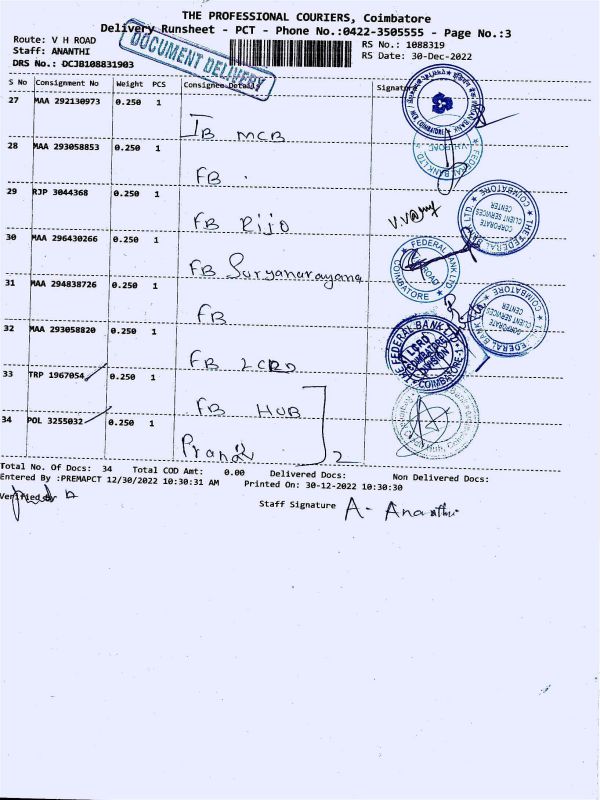 THE PROFESSIONAL COURIERS, Coimbatore
Delivery Runsheet - PCT - Phone No.:0422-3505555 - Page No.:3
Route: V H ROAD
Staff: ANANTHI
DRS No.: DCJB108831903
DOCUMENT DELIVERY
RS No.: 1088319
RS Date: 30-Dec-2022
S No Consignment No Weight PCS Consignee Details Signature
27 MAA 292130973 0.250 1 IB MCB
28 MAA 293058853 0.250 1 FB
29 RJP 3044368 0.250 1 FB Rijo
30 MAA 296430266 0.250 1 FB Suryanarayana
31 MAA 294838726 0.250 1 FB
32 MAA 293058820 0.250 1 FB LCRD
33 TRP 1967054 0.250 1 FB HUB
34 POL 3255032 0.250 1 2
INDIAN BANK
COIMBATORE
FEDERAL BANK LTD
V.H. ROAD
THE FEDERAL BANK LTD
COIMBATORE
CORPORATE
CLIENT SERVICES
CENTER
FEDERAL BANK LTD
ROAD
COIMBATORE
FEDERAL BANK
COIMBATORE
CORPORATE
CLIENT SERVICES
CENTER
THE FEDERAL BANK LTD
LCRD
COIMBATORE
DIVISION
COIMBATORE
Total No. Of Docs: 34 Total COD Amt: 0.00 Delivered Docs: Non Delivered Docs:
Entered By :PREMAPCT 12/30/2022 10:30:31 AM Printed On: 30-12-2022 10:30:30
Verified by
Staff Signature A- Ananthi